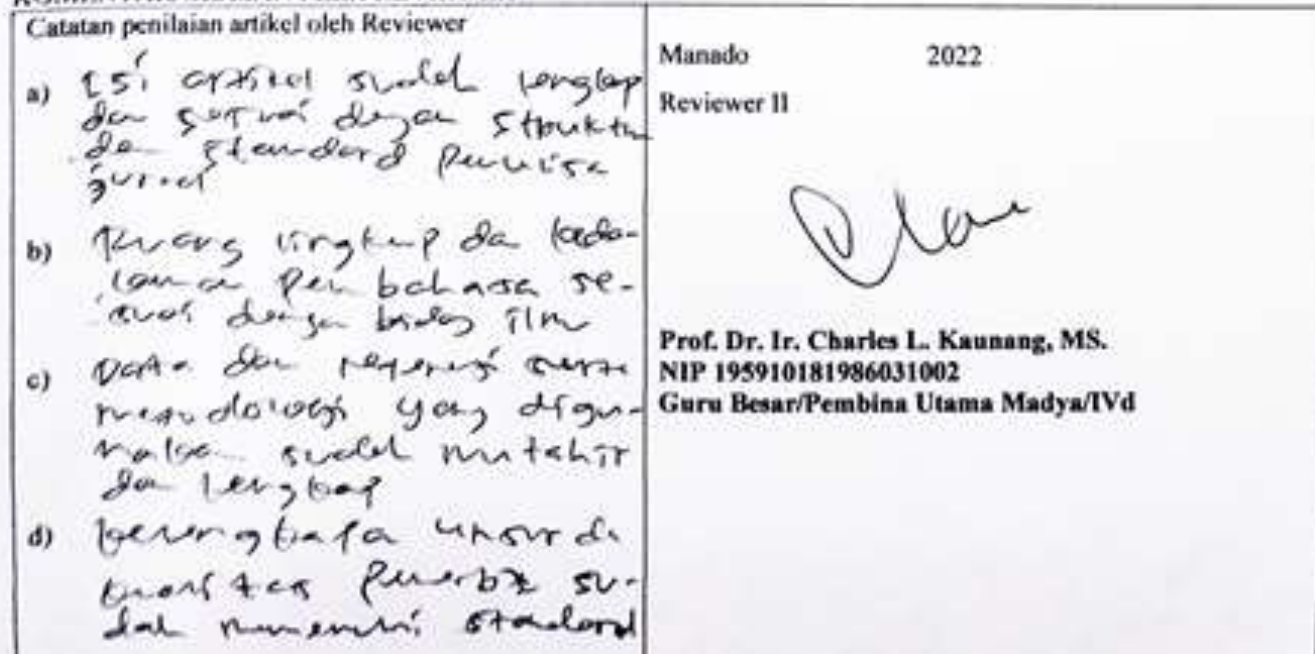 Catatan penilaian artikel oleh Reviewer
a) Isi artikel sudah lengkap
dan sesuai dengan struktur
dan standard penulisa
jurnal
b) Ruang lingkup da keda-
laman pembahasa se-
suai dengan bidag ilmu
c) Data dan referensi serta
metodologi yang digu-
nakan sudah mutahir
dan lengkap
d) kelengkapa unsur da
kualitas penerbit su-
dah memenuhi standard
Manado 2022
Reviewer II
Prof. Dr. Ir. Charles L. Kaunang, MS.
NIP 195910181986031002
Guru Besar/Pembina Utama Madya/IVd